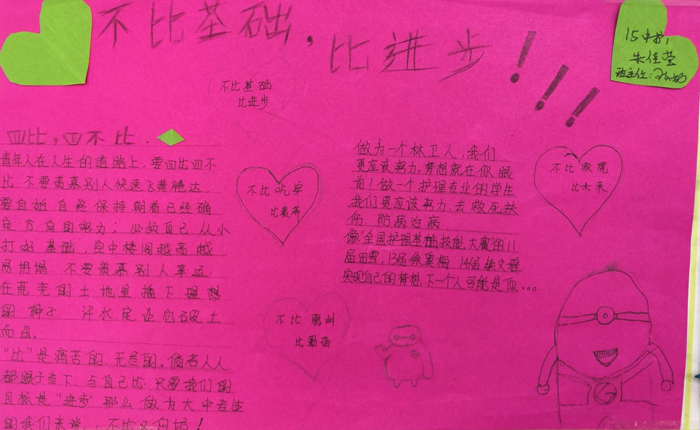 不比基础，
比进步！！！
15中护1
朱佳莹
班主任：
不比基础
比进步
四比，四不比.
青年人在人生的道路上，要四比四不
比，不要羡慕别人快速飞黄腾达
要自始自终保持朝着已经确
良方向的努力；必教自己从小
打好基础，空中楼阁越高越
易坍塌，不要羡慕别人幸运
在荒芜的土地里插下理想
的种子，汗水定还总破土
而出。
"比"是痛苦的，无意的，倘若人人
都跟于当下，与自己比，只要我们的
目标是"进步"那么做为大中专生
的我们来说，不比
不比吃穿
比素养
不比
比勤奋
不比家境
比未来
做为一个林卫人，我们
更应该努力，梦想就在你眼
前！做一个护理专业的学生
我们更应该努力，去救死扶
伤，防病治病
像全国护理基础技能大赛的11
届田雪，13届余夏梅，14届
实现自己的梦想，下一个人可能是你…